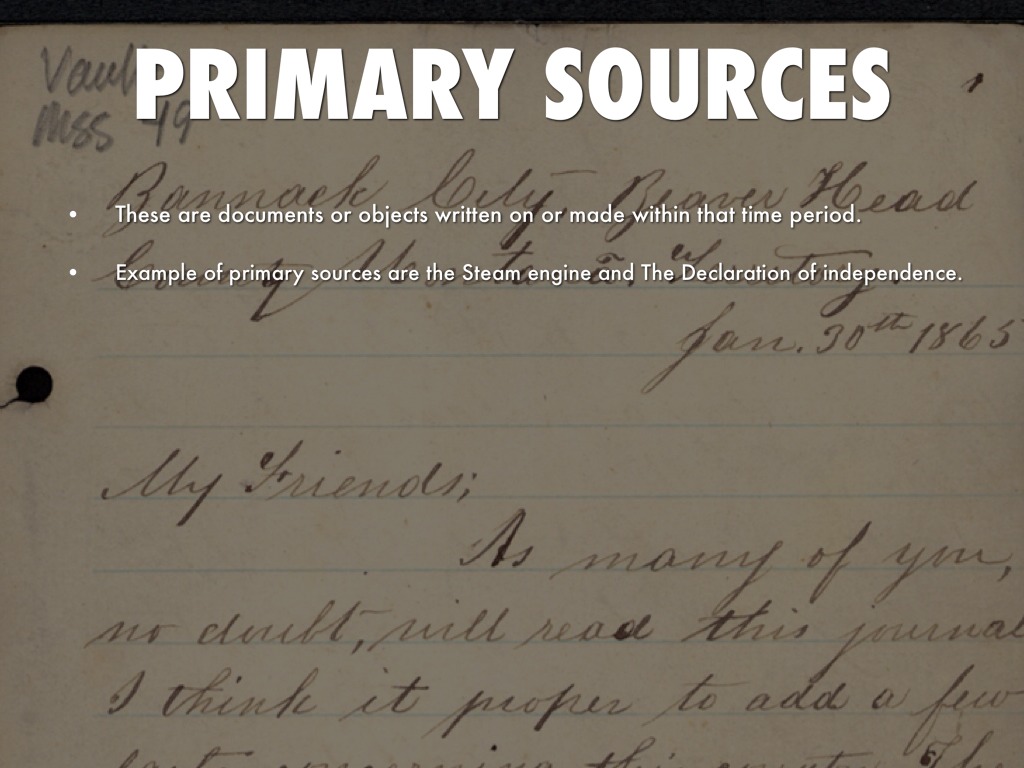 Vault
Mss 49
PRIMARY SOURCES
1
Bannack City, Beaver Head
• These are documents or objects written on or made within that time period.
County
• Example of primary sources are the Steam engine and The Declaration of independence.
Jan. 30th 1865
My Friends;
As many of you,
no doubt, will read this journal
I think it proper to add a few
concerning this country. The